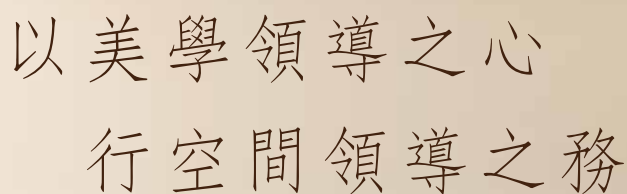 以美學領導之心
行空間領導之務